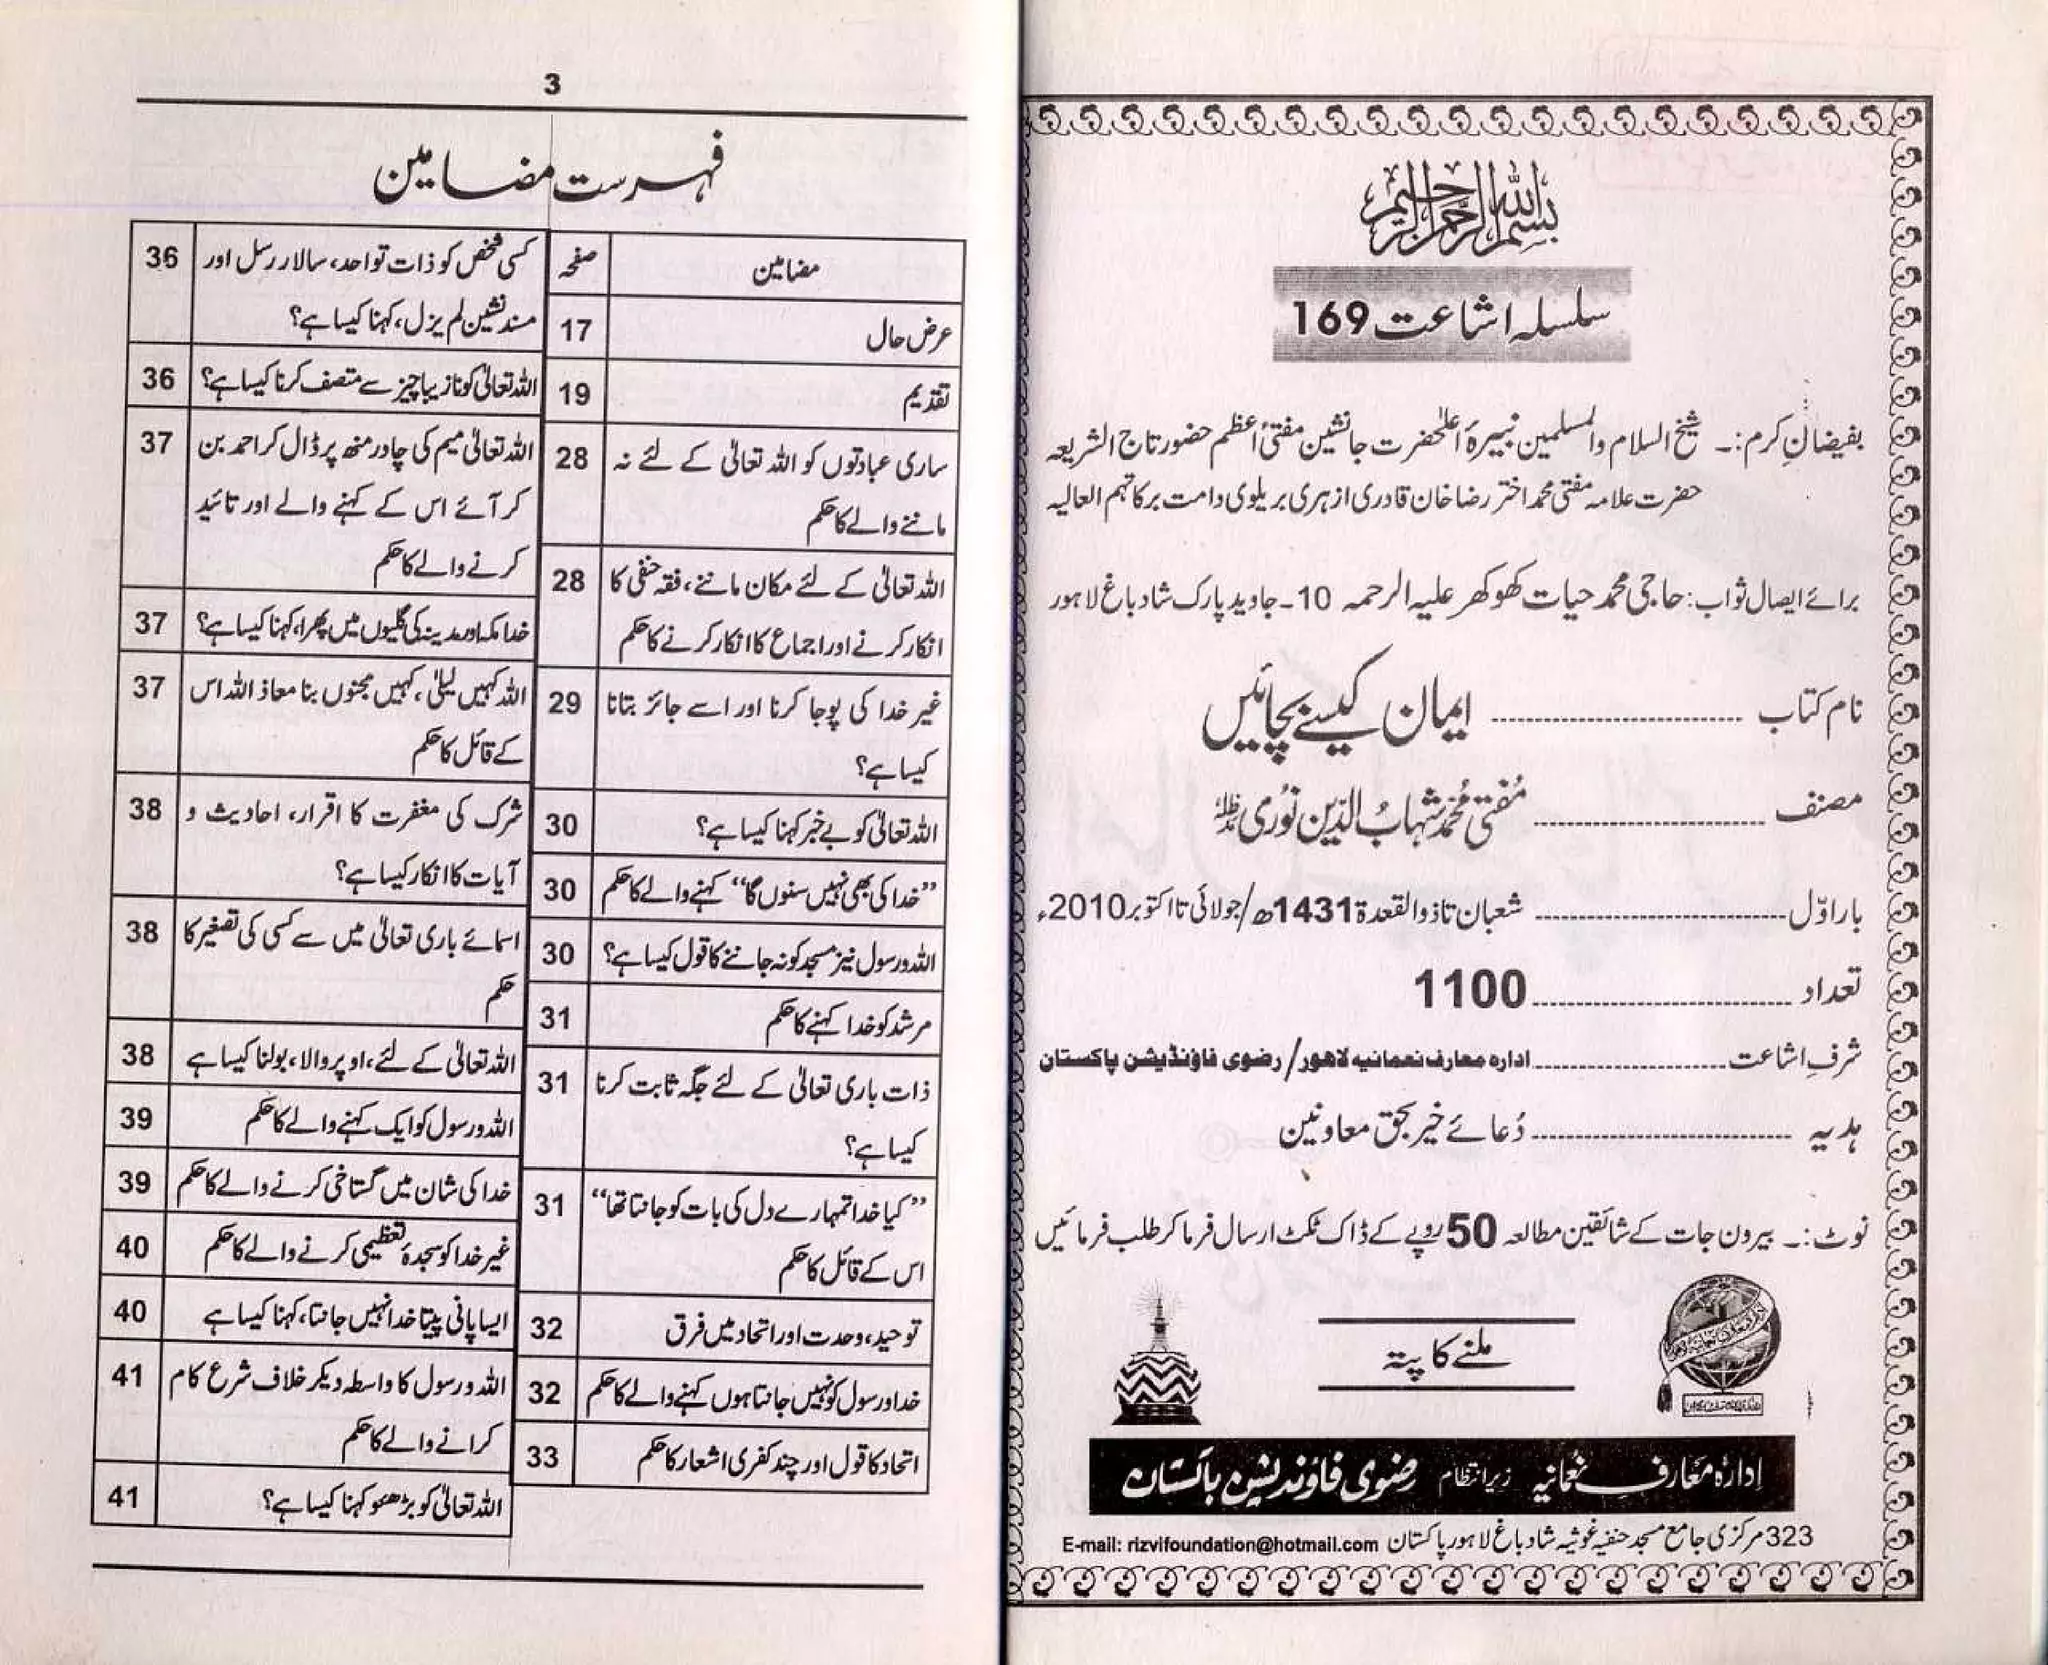 بسم اللہ الرحمن الرحیم
سلسلہ اشاعت 169
بفیضانِ کرم:۔ شیخ السلام والمسلمین نبیرۂ اعلٰحضرت جانشین مفتیٔ اعظم حضور تاج الشریعہ
حضرت علامہ مفتی محمد اختر رضا خان قادری ازہری بریلوی دامت برکاتہم العالیہ
برائے ایصال ثواب: حاجی محمد حیات کھوکھر علیہ الرحمہ 10۔جاوید پارک شادباغ لاہور
نام کتاب ........................ ایمان کیسے بچائیں
مصنف ........................ مُفتی مُحمّد شہابُ الدّین نُوری مدظلہٗ
بار اوّل ........................ شعبان تا ذوالقعدۃ 1431ھ/جولائی تا اکتوبر 2010ء
تعداد ........................ 1100
شرفِ اشاعت ........................ ادارہ معارف نعمانیہ لاہور/ رضوی فاؤنڈیشن پاکستان
ہدیہ ........................ دُعائے خیر بحق معاونین
نوٹ:۔ بیرون جات کے شائقین مطالعہ 50 روپے کے ڈاک ٹکٹ ارسال فرما کر طلب فرمائیں
ملنے کا پتہ
ادارۂ معارفِ نعمانیہ زیر انتظام رضوی فاؤنڈیشن پاکستان
323 مرکزی جامع مسجد حنفیہ غوثیہ شادباغ لاہور پاکستان E-mail: rizvifoundation@hotmail.com
3
فہرست مضامین
مضامین صفحہ
عرض حال 17
تقدیم 19
ساری عبادتوں کو اللہ تعالیٰ کے لئے نہ 28
ماننے والے کا حکم
اللہ تعالیٰ کے لئے مکان ماننے، فقہ حنفی کا 28
انکار کرنے اور اجماع کا انکار کرنے کا حکم
غیر خدا کی پوجا کرنا اور اسے جائز بتانا 29
کیسا ہے؟
اللہ تعالیٰ کو بے خبر کہنا کیسا ہے؟ 30
”خدا کی بھی نہیں سنوں گا“ کہنے والے کا حکم 30
اللہ و رسول نیز مسجد کو نہ جاننے کا قول کیسا ہے؟ 30
مرشد کو خدا کہنے کا حکم 31
ذات باری تعالیٰ کے لئے جگہ ثابت کرنا 31
کیسا ہے؟
”کیا خدا تمہارے دل کی بات کو جانتا تھا“ 31
اس کے قائل کا حکم
توحید، وحدت اور اتحاد میں فرق 32
خدا و رسول کو نہیں جانتا ہوں کہنے والے کا حکم 32
اتحاد کا قول اور چند کفری اشعار کا حکم 33
کسی شخص کو ذات تو احد، سالار رسل اور 36
مسند نشین لم یزل، کہنا کیسا ہے؟
اللہ تعالیٰ کو نازیبا چیز سے متصف کرنا کیسا ہے؟ 36
اللہ تعالیٰ میم کی چادر منھ پر ڈال کر احمد بن 37
کر آئے اس کے کہنے والے اور تائید
کرنے والے کا حکم
خدا مکہ اور مدینہ کی گلیوں میں پھرا، کہنا کیسا ہے؟ 37
اللہ کہیں لیلیٰ، کہیں مجنوں بنا معاذ اللہ اس 37
کے قائل کا حکم
شرک کی مغفرت کا اقرار، احادیث و 38
آیات کا انکار کیسا ہے؟
اسمائے باری تعالیٰ میں سے کسی کی تصغیر کا 38
حکم
اللہ تعالیٰ کے لئے، اوپر والا، بولنا کیسا ہے 38
اللہ و رسول کو ایک کہنے والے کا حکم 39
خدا کی شان میں گستاخی کرنے والے کا حکم 39
غیر خدا کو سجدۂ تعظیمی کرنے والے کا حکم 40
ایسا پانی پیتا خدا نہیں جانتا، کہنا کیسا ہے 40
اللہ و رسول کا واسطہ دیکر خلاف شرع کام 41
کرانے والے کا حکم
اللہ تعالیٰ کو بڑھئو کہنا کیسا ہے؟ 41